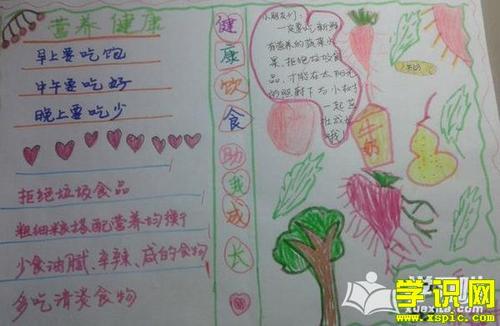 营养健康
早上要吃饱
中午要吃好
晚上要吃少
拒绝垃圾食品
粗细粮搭配营养均衡
少食油腻、辛辣、咸的食物
多吃清淡食物
健康饮食助我成长
小朋友们：
一定要吃新鲜
有营养的蔬菜水
果、拒绝垃圾食
品，才能在太阳光
的照射下与小树
一起茁
壮成长
哦！
牛奶
学识网
www.xspic.com